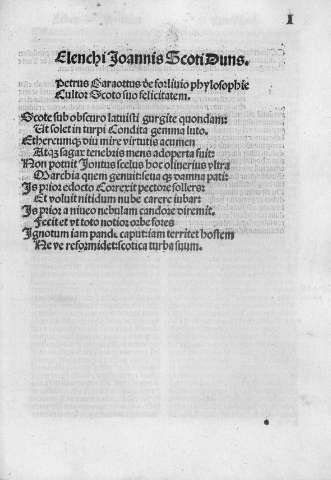 I
Elenchi Joannis Scoti Duns.
Petrus Garaottus de forliuio phylosophie
Cultor Scoto suo felicitatem.
Scote sub obscuro latuisti gurgite quondam:
Ut solet in turpi Condita gemma luto.
Ethereumq; diu mire virtutis acumen
Atq; sagax tenebris mens adoperta fuit:
Non potuit scelus hoc oliuerius vltra
Marchia quem genuit: seua q; damna pati:
Is prior edocto Correxit pectore sollers:
Et voluit nitidum nube carere iubar:
Is prior a niueo nebulam candore diremit.
Fecit et vt toto notior orbe fores
Ignotum iam pande caput: iam territet hostem
Ne ve reformidet: scotica turba suum.